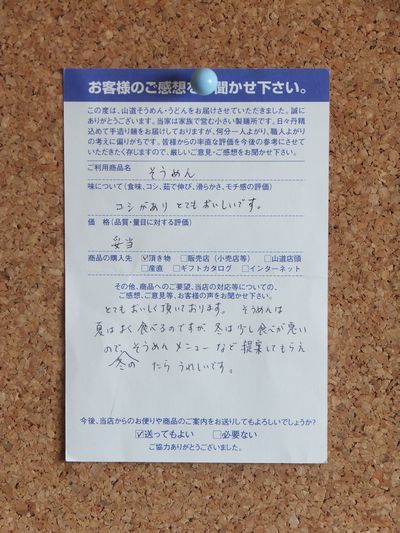 お客様のご感想を聞かせ下さい。
この度は、山道そうめん・うどんをお届けさせていただきました。誠に
ありがとうございます。当家は家族で営む小さい製麺所です。日々丹精
込めて手造り麺をお届けしておりますが、何分一人よがり、職人よがり
の考えに偏りがちです。皆様からの率直な評価を今後の参考にさせて
いただきたく存じますので、厳しいご意見・ご感想をお聞かせ下さい。
ご利用商品名
そうめん
味について(食味、コシ、茹で伸び、滑らかさ、モチ感の評価)
コシがあり とても おいしいです。
価 格(品質・量目に対する評価)
妥当
商品の購入先 ☑頂き物 □販売店(小売店等) □山道店頭
□産直 □ギフトカタログ □インターネット
その他、商品へのご要望、当店の対応等についての、
ご感想、ご意見等、お客様の声をお聞かせ下さい。
とても おいしく頂いております。 そうめんは
夏はよく食べるのですが 冬は少し食べが悪い
ので、そうめん メニュー など 提案してもらえ
冬の たら うれしいです。
今後、当店からのお便りや商品のご案内をお送りしてもよろしいでしょうか?
☑送ってもよい □必要ない
ご協力ありがとうございました。